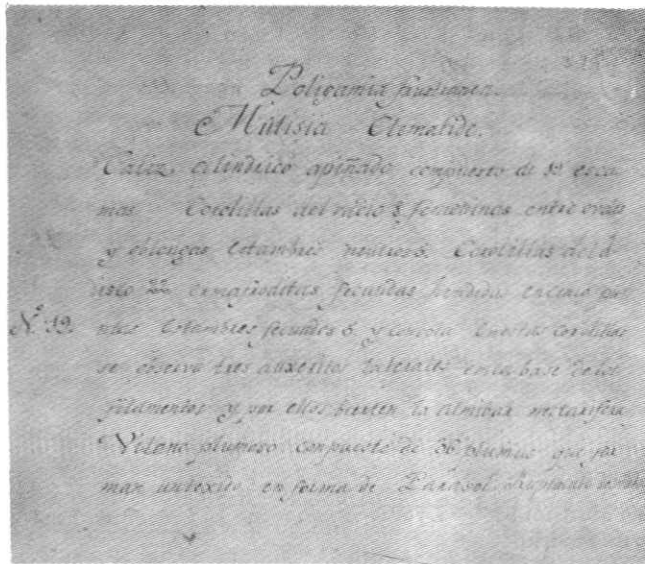 Poligamia frustranea.
Mutisia Clematide.
Caliz, cilindrico apiñado compuesto de esca
mas. Corolillas del radio 8 femeninas entre ovales
y oblongas Estambres neutros 5. Corolillas del d
isco 22 ermafroditas fecundas hendidas en cinco pun
Nº 19. tas Estambres fecundos 5 y corcola En estas corolillas
se observa tres auxeritos laterales en la base de los
filamentos y por ellos vierten la almibar nectarifera
Vilano plumoso compuesto de 36 plumas que for
man un texido en forma de Parasol.